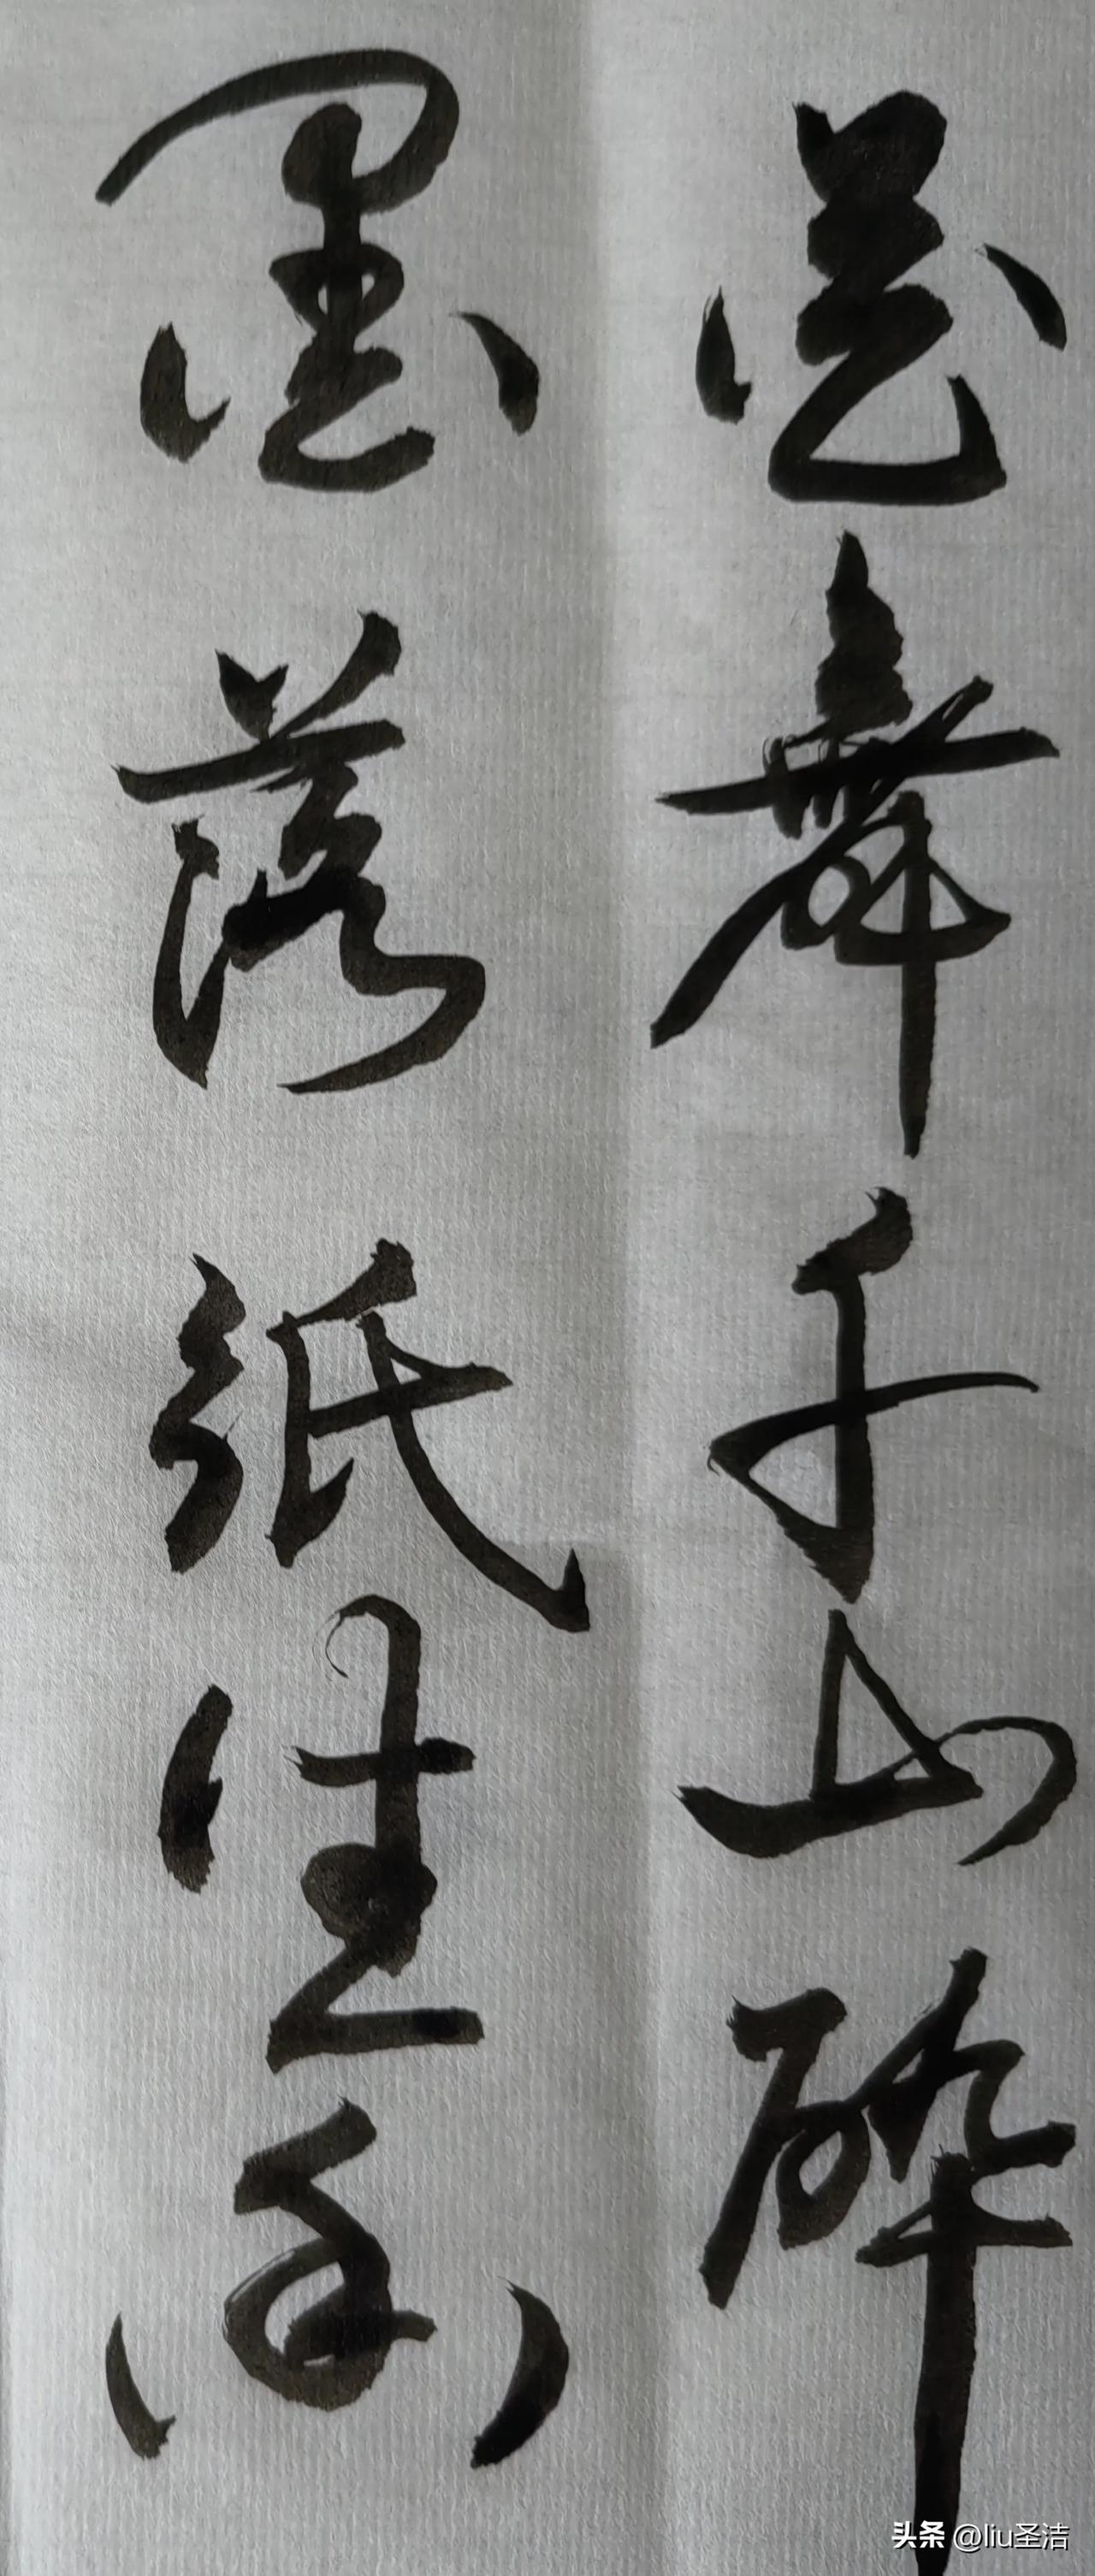 舞千山碎
墨落纸生香
头条 @liu圣洁